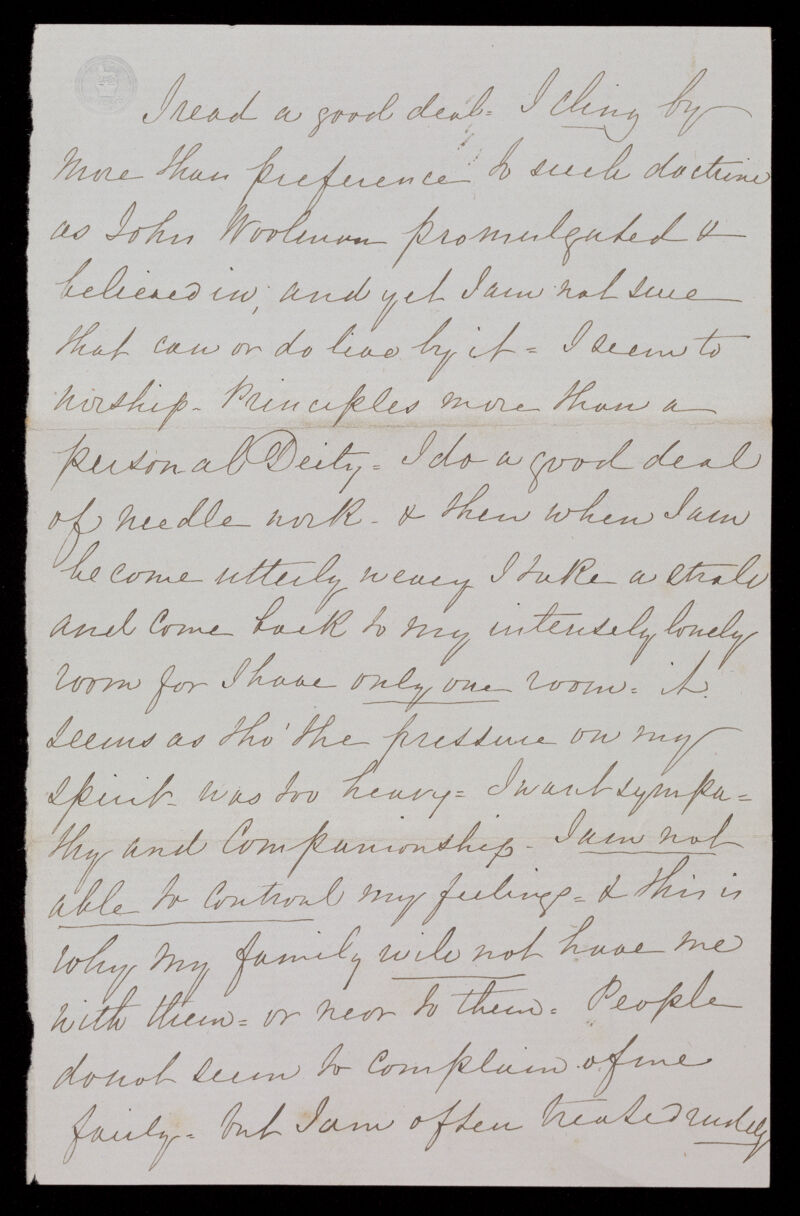 I read a good deal = I cling by
more than preference to such doctrine
as John Woolman promulgated &
believed in, and yet I am not sure
that can or do live by it = I seem to
worship - Principles more than a
personal Deity = I do a good deal
of needle work - & then when I am
become utterly weary I take a strole
and come back to my intensely lonely
room for I have only one room = it
seems as tho' the pressure on my
spirit - was too heavy = I want sympa =
thy and Companionship - I am not
able to controul my feelings = & this is
why my family will not have me
with them = or near to them = People
do not seem to complain of me
fairly = but I am often treated rudely